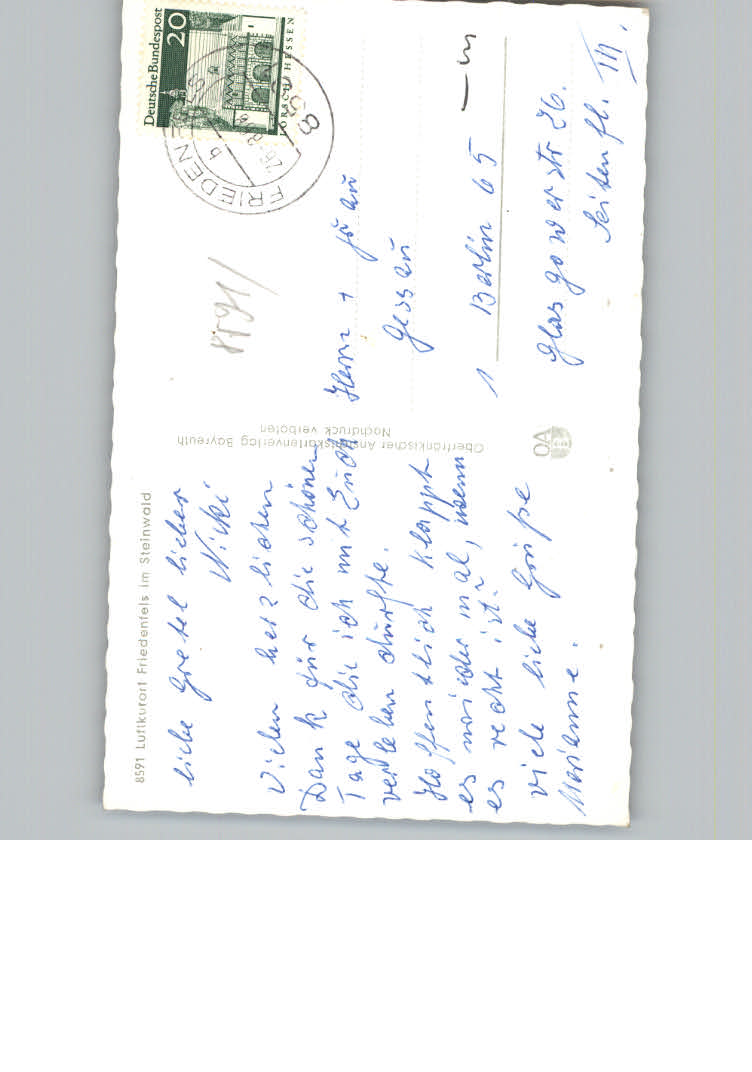 8591 Luftkurort Friedenfels im Steinwald
liebe Gretel lieber
Vielen herzlichen
Dank für die schönen
Tage die ich mit Euch
verleben durfte.
Hoffentlich klappt
es wieder mal, wenn
es recht ist.
viele liebe Grüße
Marianne.
Oberfränkischer Ansichtskartenverlag Bayreuth
Nachdruck verboten
OA
Deutsche Bundespost
20
LORSCH / HESSEN
FRIEDEN
b
8591
Herrn +
1 Berlin 65
Glasgower Str 26.
Seitenfl. III.